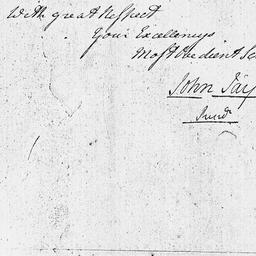 With great Respect
Your Excellencys
Most Obedient Se
John Jay